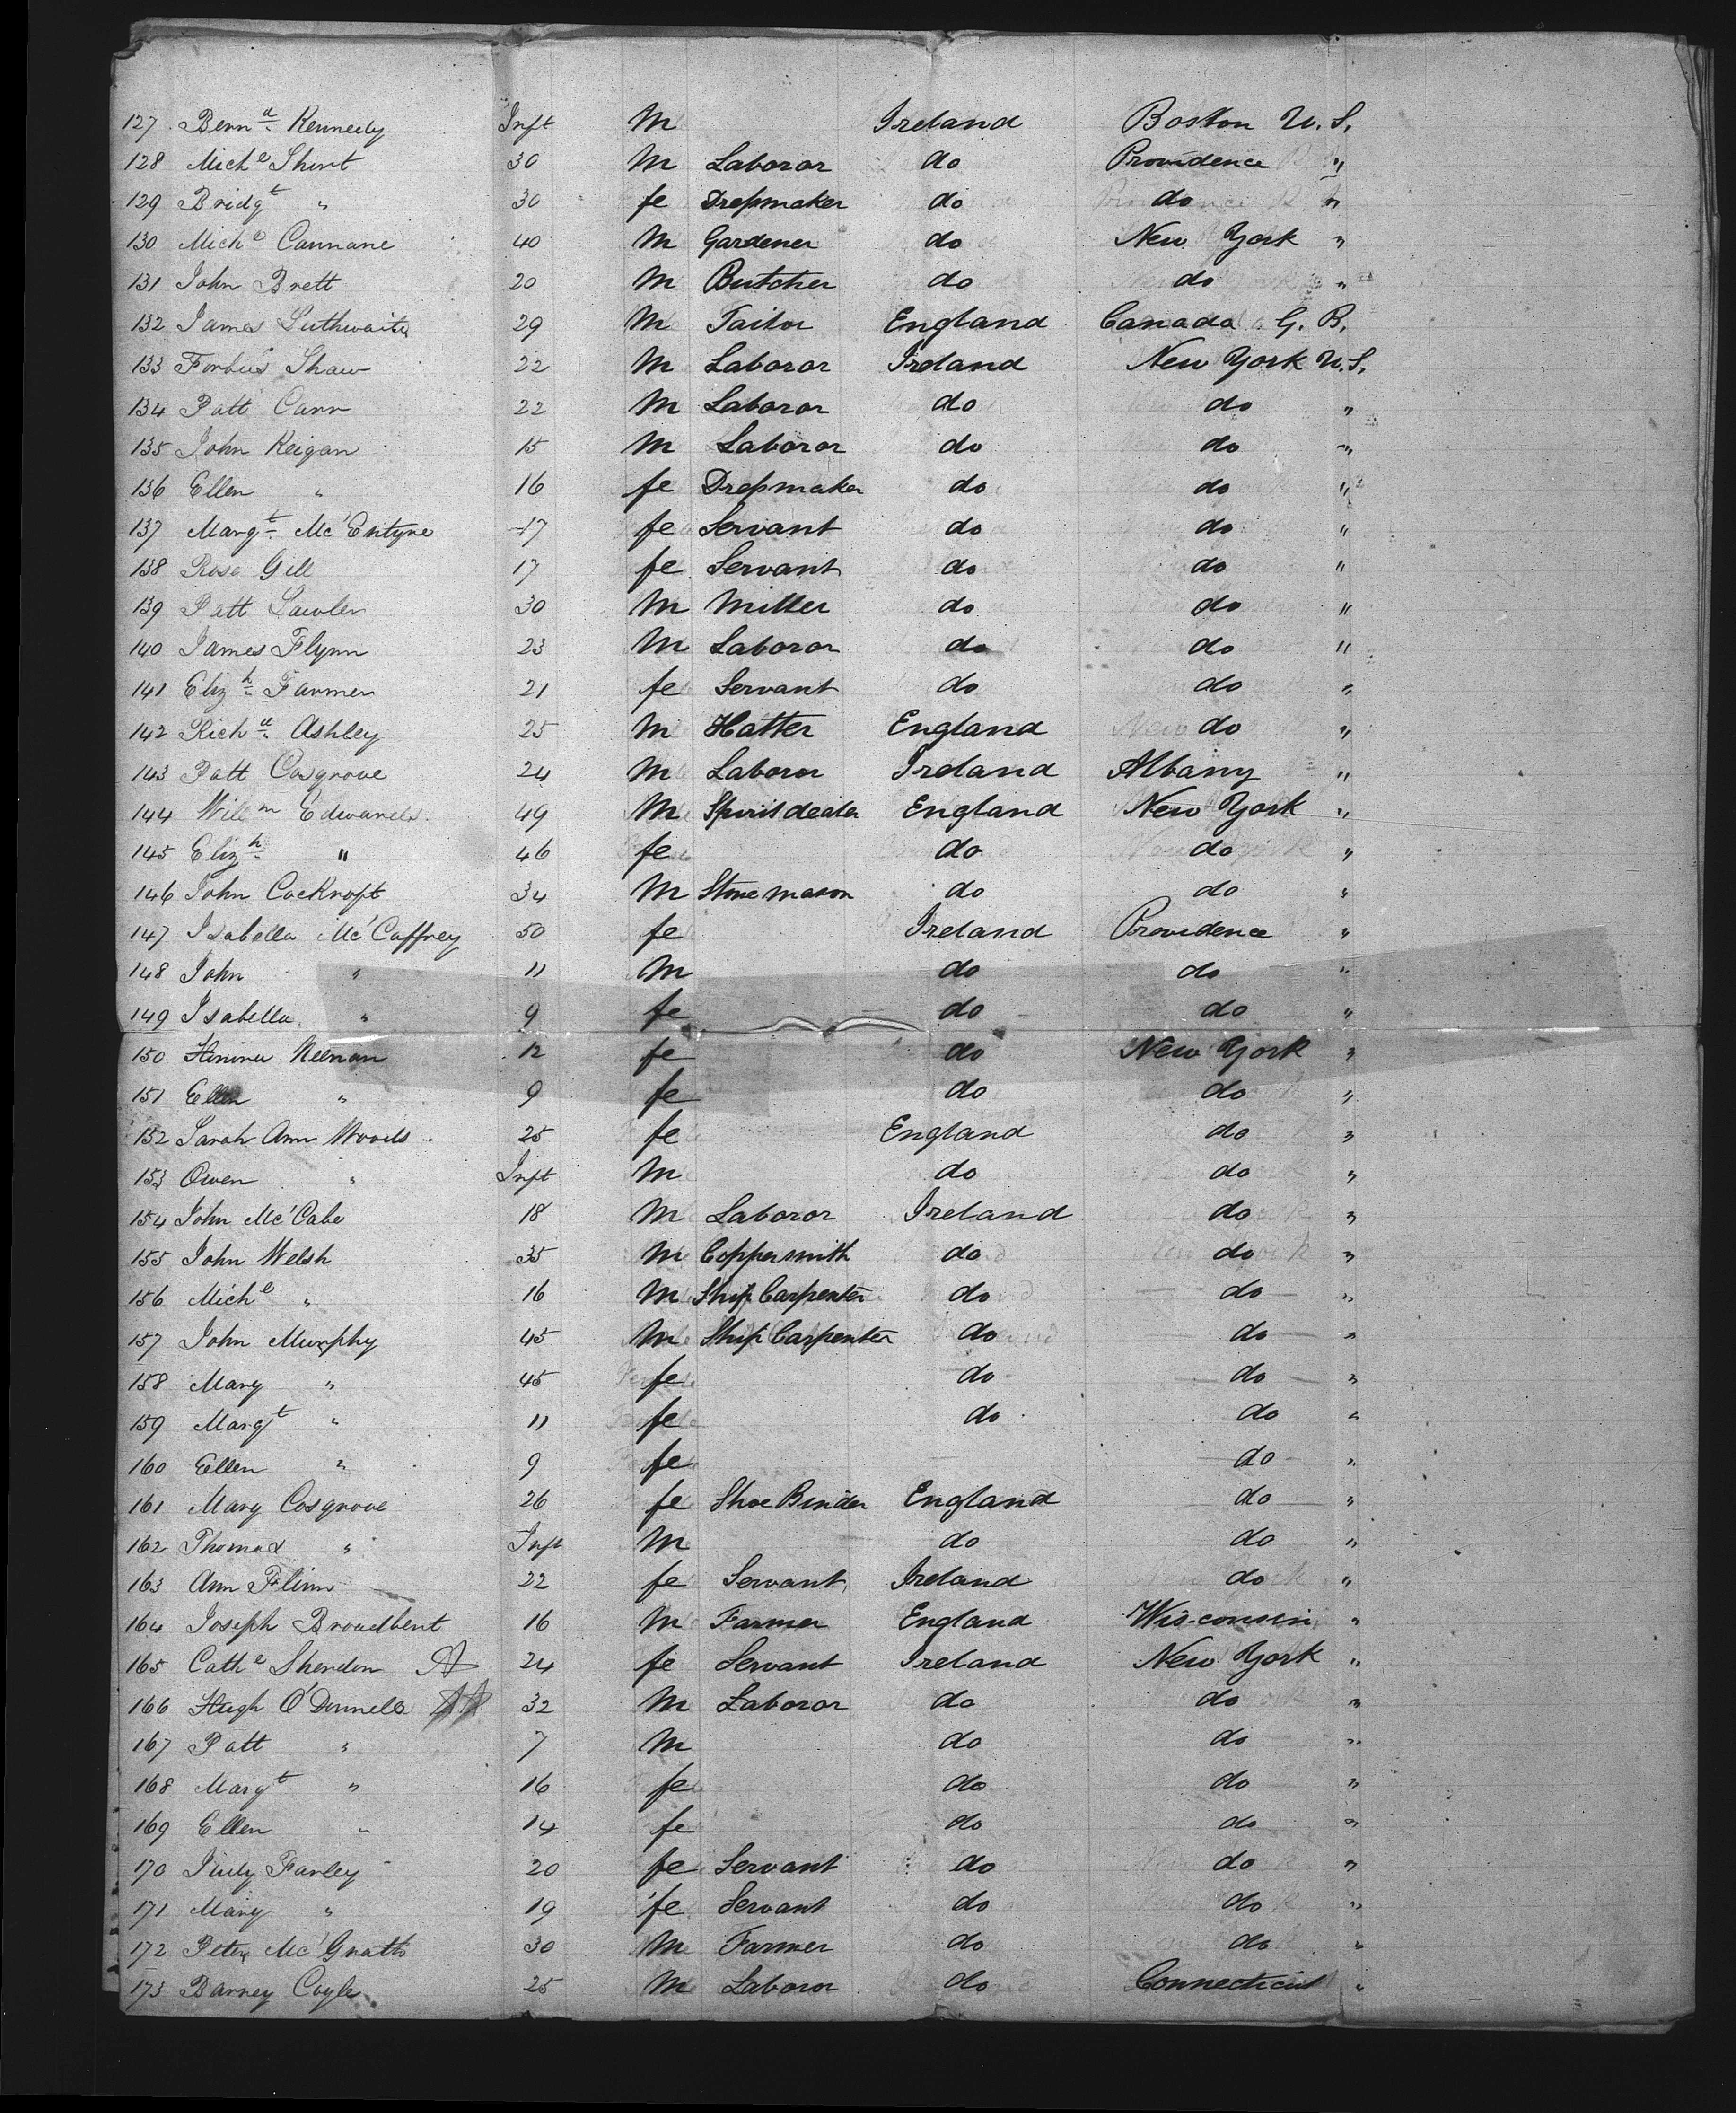 127 Bernd Kennedy Inft M Ireland Boston U. S.
128 Michl Short 30 M Laboror do Providence "
129 Bridgt " 30 fe Dressmaker do do "
130 Michl Cannane 40 M Gardener do New York "
131 John Brett 20 M Butcher do do "
132 James Luthwaite 29 M Tailor England Canada G. B.
133 Forbus Shaw 22 M Laboror Ireland New York U.S.
134 Patt Carr 22 M Laboror do do "
135 John Keigan 15 M Laboror do do "
136 Ellen " 16 fe Dressmaker do do "
137 Margt Mc'Entyre 17 fe Servant do do "
138 Rose Gill 17 fe Servant do do "
139 Patt Lawler 30 M Miller do do "
140 James Flynn 23 M Laboror do do "
141 Elizh Farmer 21 fe Servant do do "
142 Richd Ashley 25 M Hatter England do "
143 Patt Cosgrove 24 M Laboror Ireland Albany "
144 Willm Edwards 49 M Spirit dealer England New York "
145 Elizh " 46 fe do do "
146 John Cockroft 34 M Stone mason do do "
147 Isabella Mc'Caffrey 50 fe Ireland Providence "
148 John " 11 M do do "
149 Isabella " 9 fe do do "
150 Keenan 12 fe do New York "
151 Ellen " 9 fe do do "
152 Sarah Ann Woods 25 fe England do "
153 Owen " Inft M do do "
154 John Mc'Cabe 18 M Laboror Ireland do "
155 John Welsh 35 M Coppersmith do do "
156 Michl " 16 M Ship Carpenter do do "
157 John Murphy 45 M Ship Carpenter do do "
158 Mary " 45 fe do do "
159 Margt " 11 fe do do "
160 Ellen " 9 fe do "
161 Mary Cosgrove 26 fe Shoe Binder England do "
162 Thomas " Inft M do do "
163 Ann Flinn 22 fe Servant Ireland do "
164 Joseph Broadbent 16 M Farmer England Wis-consin "
165 Cathe Sheridon 24 fe Servant Ireland New York "
166 Hugh O'Donnell 32 M Laboror do do "
167 Patt " 7 M do do "
168 Margt " 16 fe do do "
169 Ellen " 14 fe do do "
170 Judy Farley 20 fe Servant do do "
171 Mary " 19 fe Servant do do "
172 Peter Mc'Grath 30 M Farmer do do "
173 Barney Coyle 25 M Laboror do Connecticut "